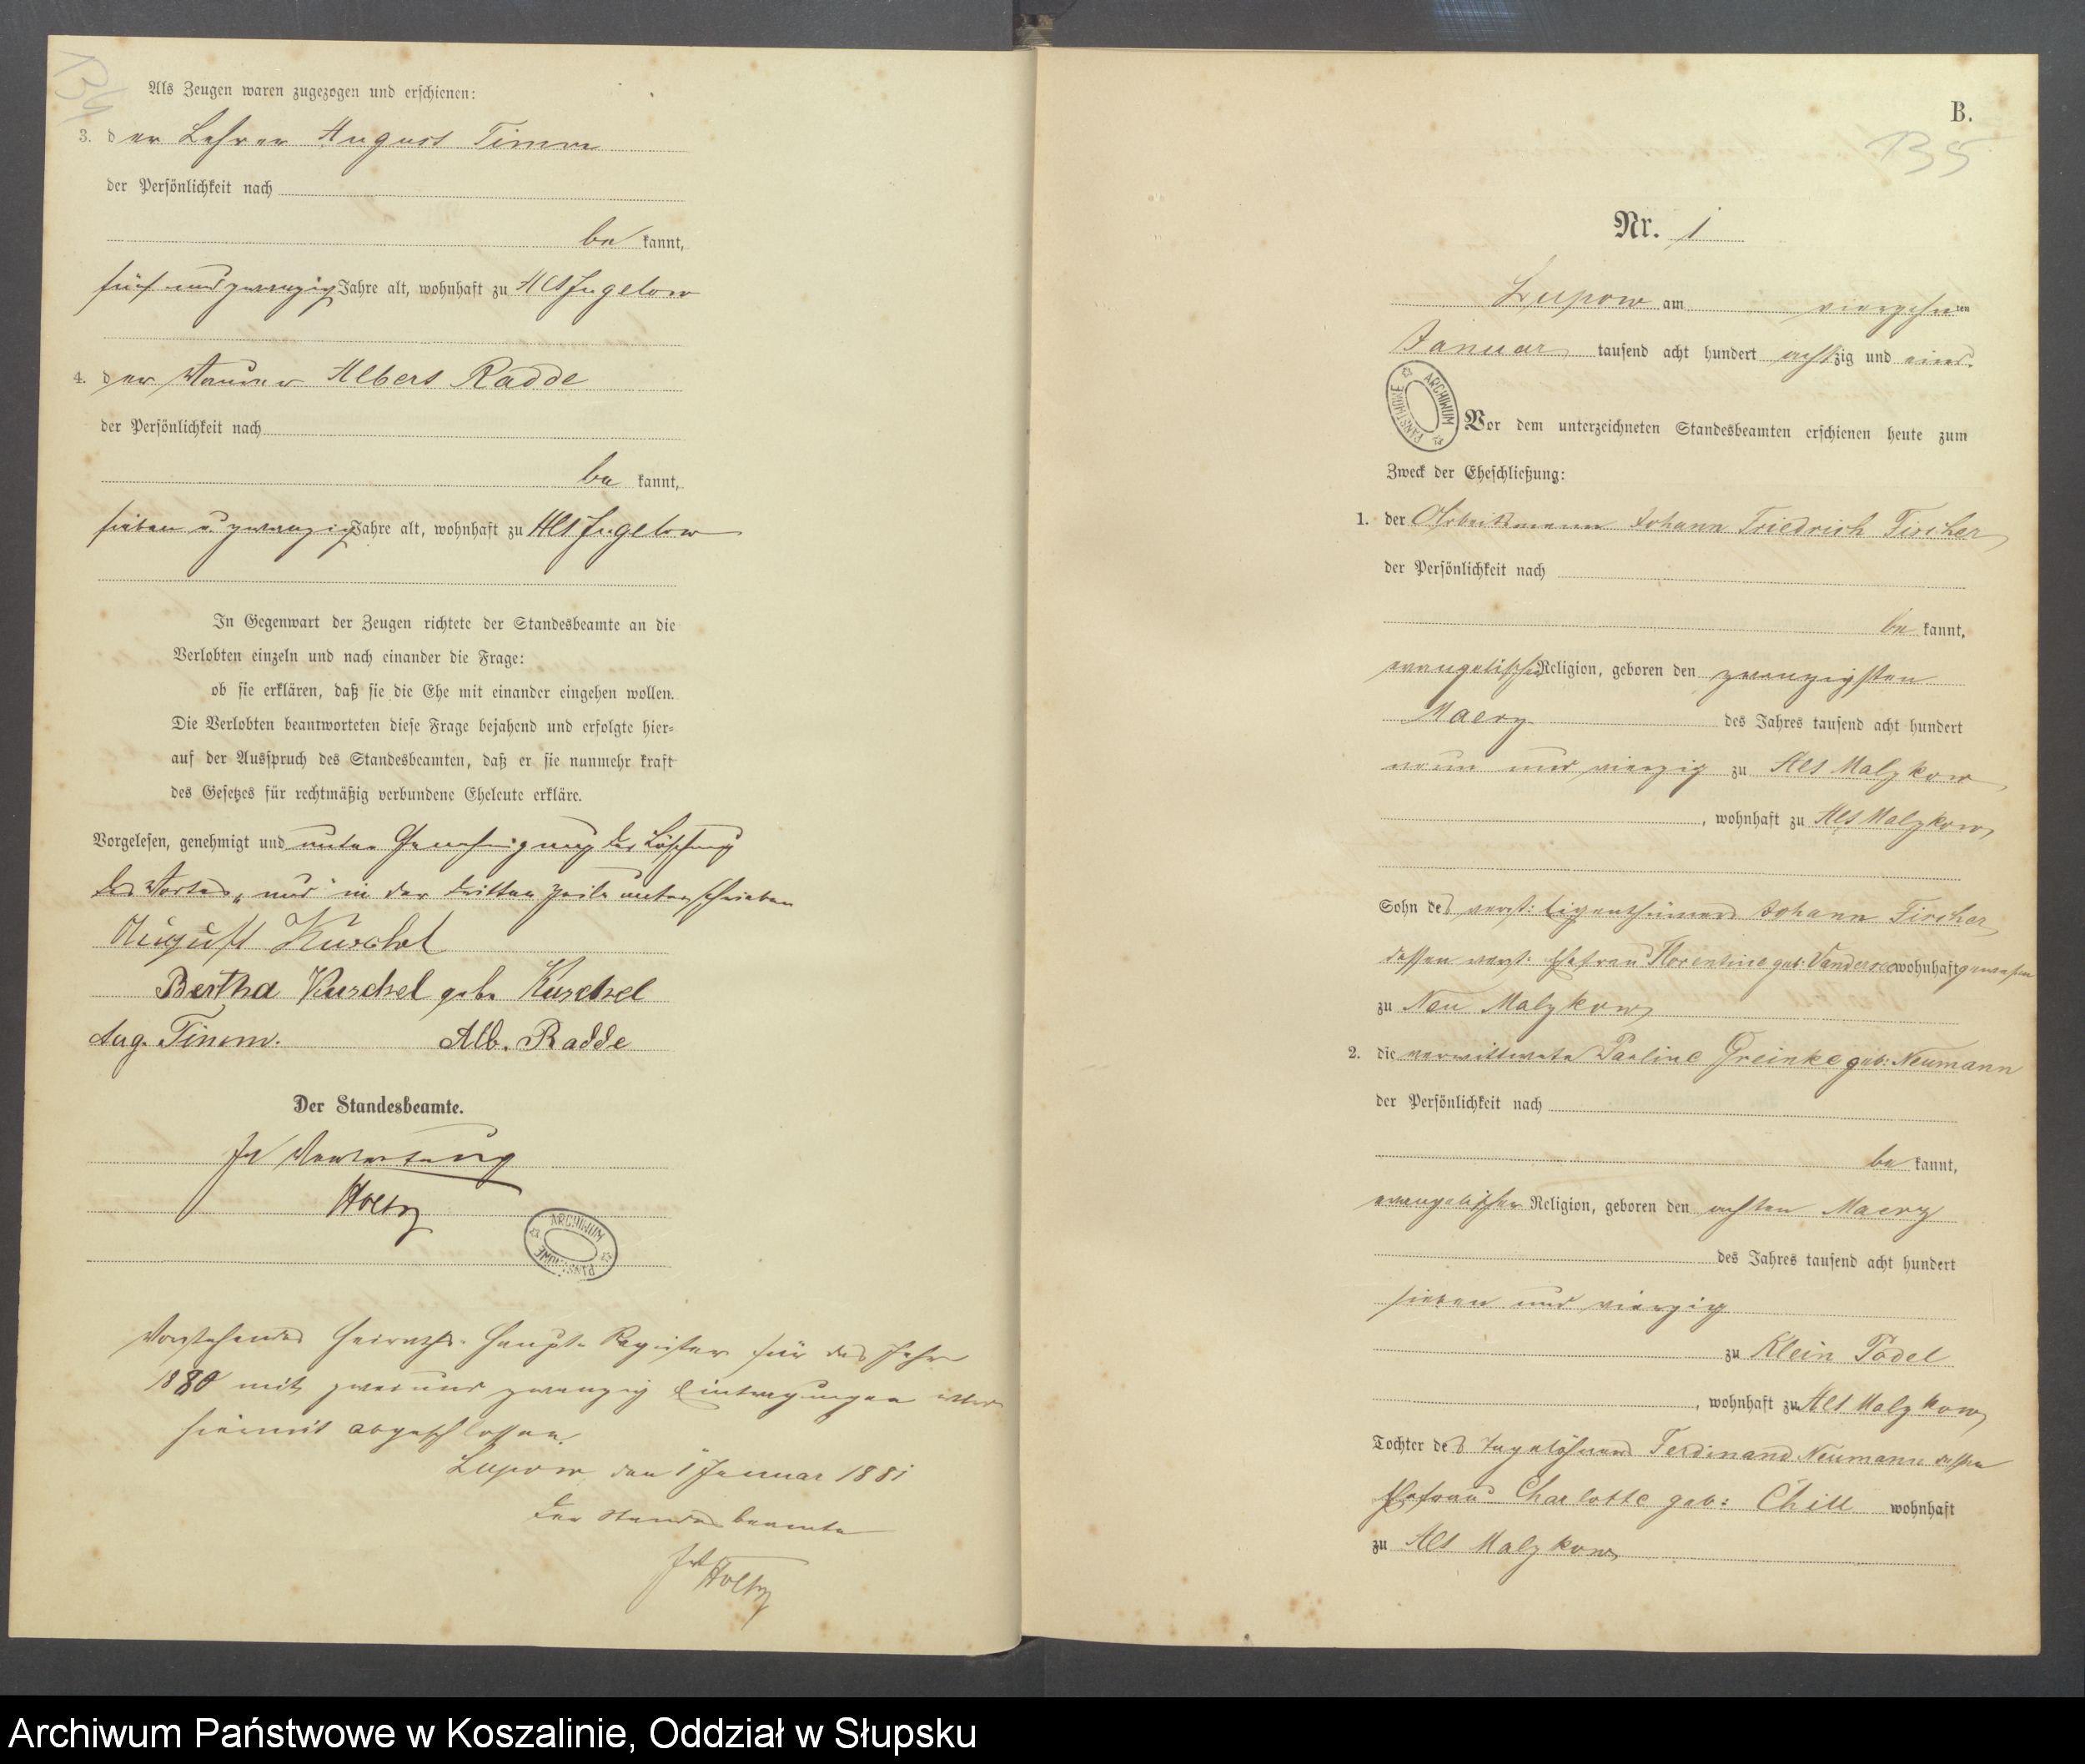 134
Als Zeugen waren zugezogen und erschienen:
3. der Lehrer August Timm
der Persönlichkeit nach
be kannt,
fünf und zwanzig Jahre alt, wohnhaft zu Alt Jugelow
4. der Maurer Albert Radde
der Persönlichkeit nach
be kannt,
sieben u. zwanzig Jahre alt, wohnhaft zu Alt Jugelow
In Gegenwart der Zeugen richtete der Standesbeamte an die
Verlobten einzeln und nach einander die Frage:
ob sie erklären, daß sie die Ehe mit einander eingehen wollen.
Die Verlobten beantworteten diese Frage bejahend und erfolgte hier-
auf der Ausspruch des Standesbeamten, daß er sie nunmehr kraft
des Gesetzes für rechtmäßig verbundene Eheleute erkläre.
Vorgelesen, genehmigt und unter Genehmigung der Löschung
des Wortes „und" in der dritten Zeile unterschrieben
August Kuschel
Bertha Kuschel geb. Kuschel
Aug. Timm. Alb. Radde
Der Standesbeamte.
In Vertretung
Holtz
ARCHIWUM PAŃSTWOWE
Vorstehendes Heiraths-Haupt-Register für das Jahr
1880 mit zwei und zwanzig Eintragungen wird
hiermit abgeschlossen.
Lupow den 1 Januar 1881
Der Standesbeamte
Holtz
B.
135
Nr. 1
Lupow am vierzehn ten
Januar tausend acht hundert acht zig und eins.
ARCHIWUM PAŃSTWOWE
Vor dem unterzeichneten Standesbeamten erschienen heute zum
Zweck der Eheschließung:
1. der Arbeitsmann Johann Friedrich Fischer
der Persönlichkeit nach
be kannt,
evangelischer Religion, geboren den zwanzigsten
Maerz des Jahres tausend acht hundert
neun und vierzig zu Alt Malzkow
, wohnhaft zu Alt Malzkow
Sohn des verst: Eigenthümers Johann Fischer
dessen verst. Ehefrau Florentine geb: wohnhaft gewesen
zu Neu Malzkow
2. die verwittwete Pauline Greinke geb: Neumann
der Persönlichkeit nach
be kannt,
evangelischer Religion, geboren den achten Maerz
des Jahres tausend acht hundert
sieben und vierzig
zu Klein Podel
, wohnhaft zu Alt Malzkow
Tochter des Tagelöhners Ferdinand Neumann dessen
Ehefrau Charlotte geb: Chill wohnhaft
zu Alt Malzkow
Archiwum Państwowe w Koszalinie, Oddział w Słupsku